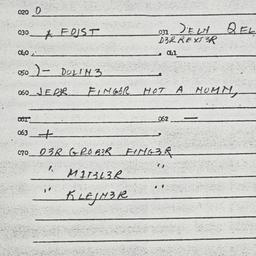 020 0
030 & FDIST 031 JELN QEL
D3RREXT3R
040 041
050 )- DULIN3
060 JEDR FINGER HOT A NUMN,
061 062 —
063 +
070 D3R GROB3R FINGER
" MITEL3R "
" KLEJN3R "